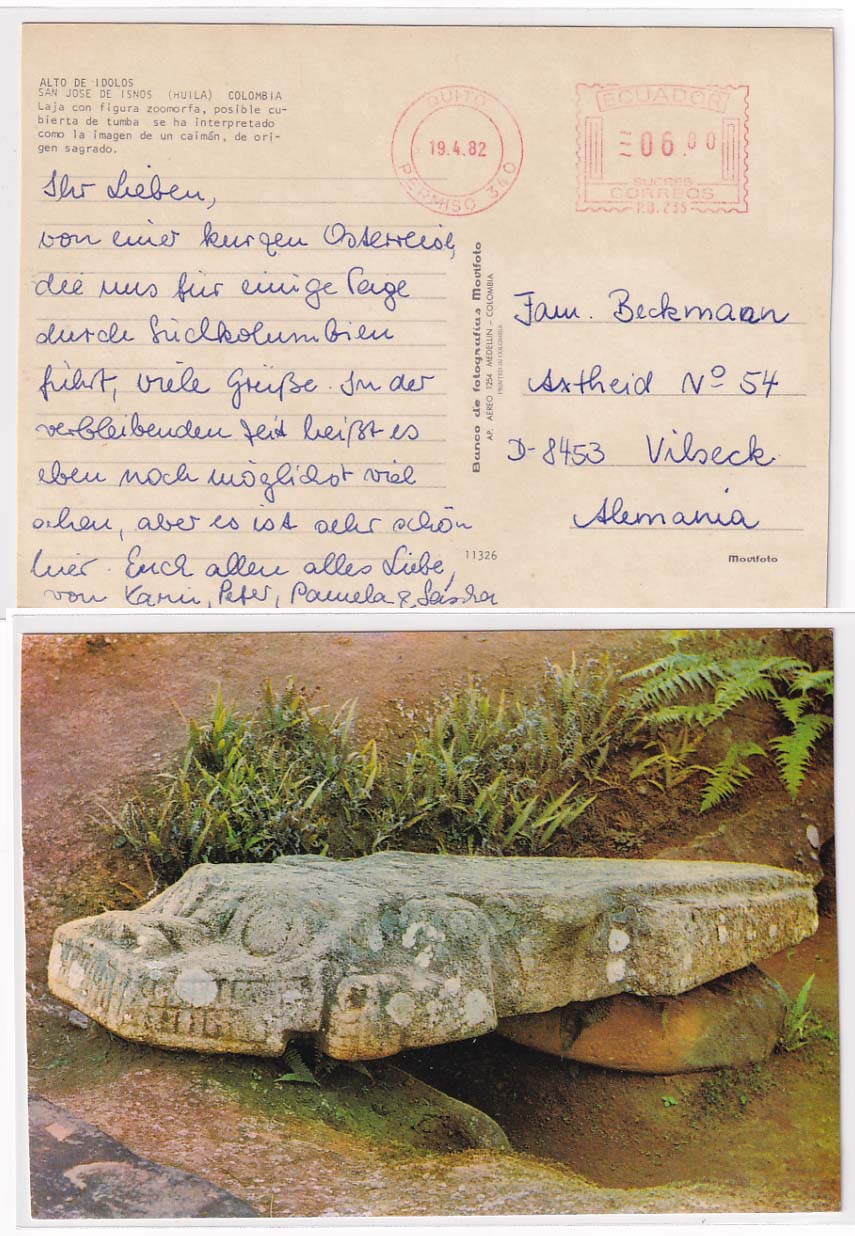 ALTO DE IDOLOS
SAN JOSE DE ISNOS (HUILA) COLOMBIA
Laja con figura zoomorfa, posible cu-
bierta de tumba se ha interpretado
como la imagen de un caimán, de ori-
gen sagrado.
QUITO
19.4.82
PERMISO 340
ECUADOR
06.00
SUCRES
CORREOS
P.B. 255
Ihr Lieben,
von einer kurzen Osterreise,
die uns für einige Tage
durch Südkolumbien
führt, viele Grüße. In der
verbleibenden Zeit heißt es
eben noch möglichst viel
sehen, aber es ist sehr schön
hier. Euch allen alles Liebe,
von Karin, Peter, Pamela & Sascha
Banco de fotografías Movifoto
AP. AEREO 1254 MEDELLIN - COLOMBIA
PRINTED IN COLOMBIA
Fam. Beckmann
Axtheid Nº 54
D-8453 Vilseck
Alemania
11326
Movifoto